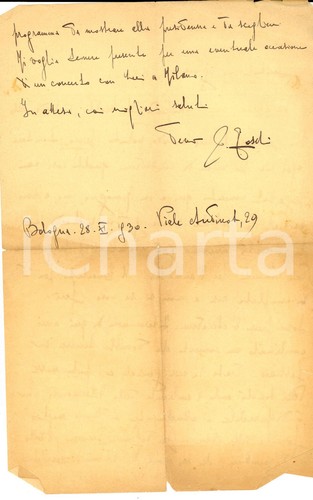 programma da mostrare alla presidenza e da scegliere
Mi voglia tenere presente per una eventuale occasione
di un concerto con Lei a Milano.
In attesa, coi migliori saluti
Toschi
Bologna. 28. XI. 930. Viale Audinot, 29
iCharta